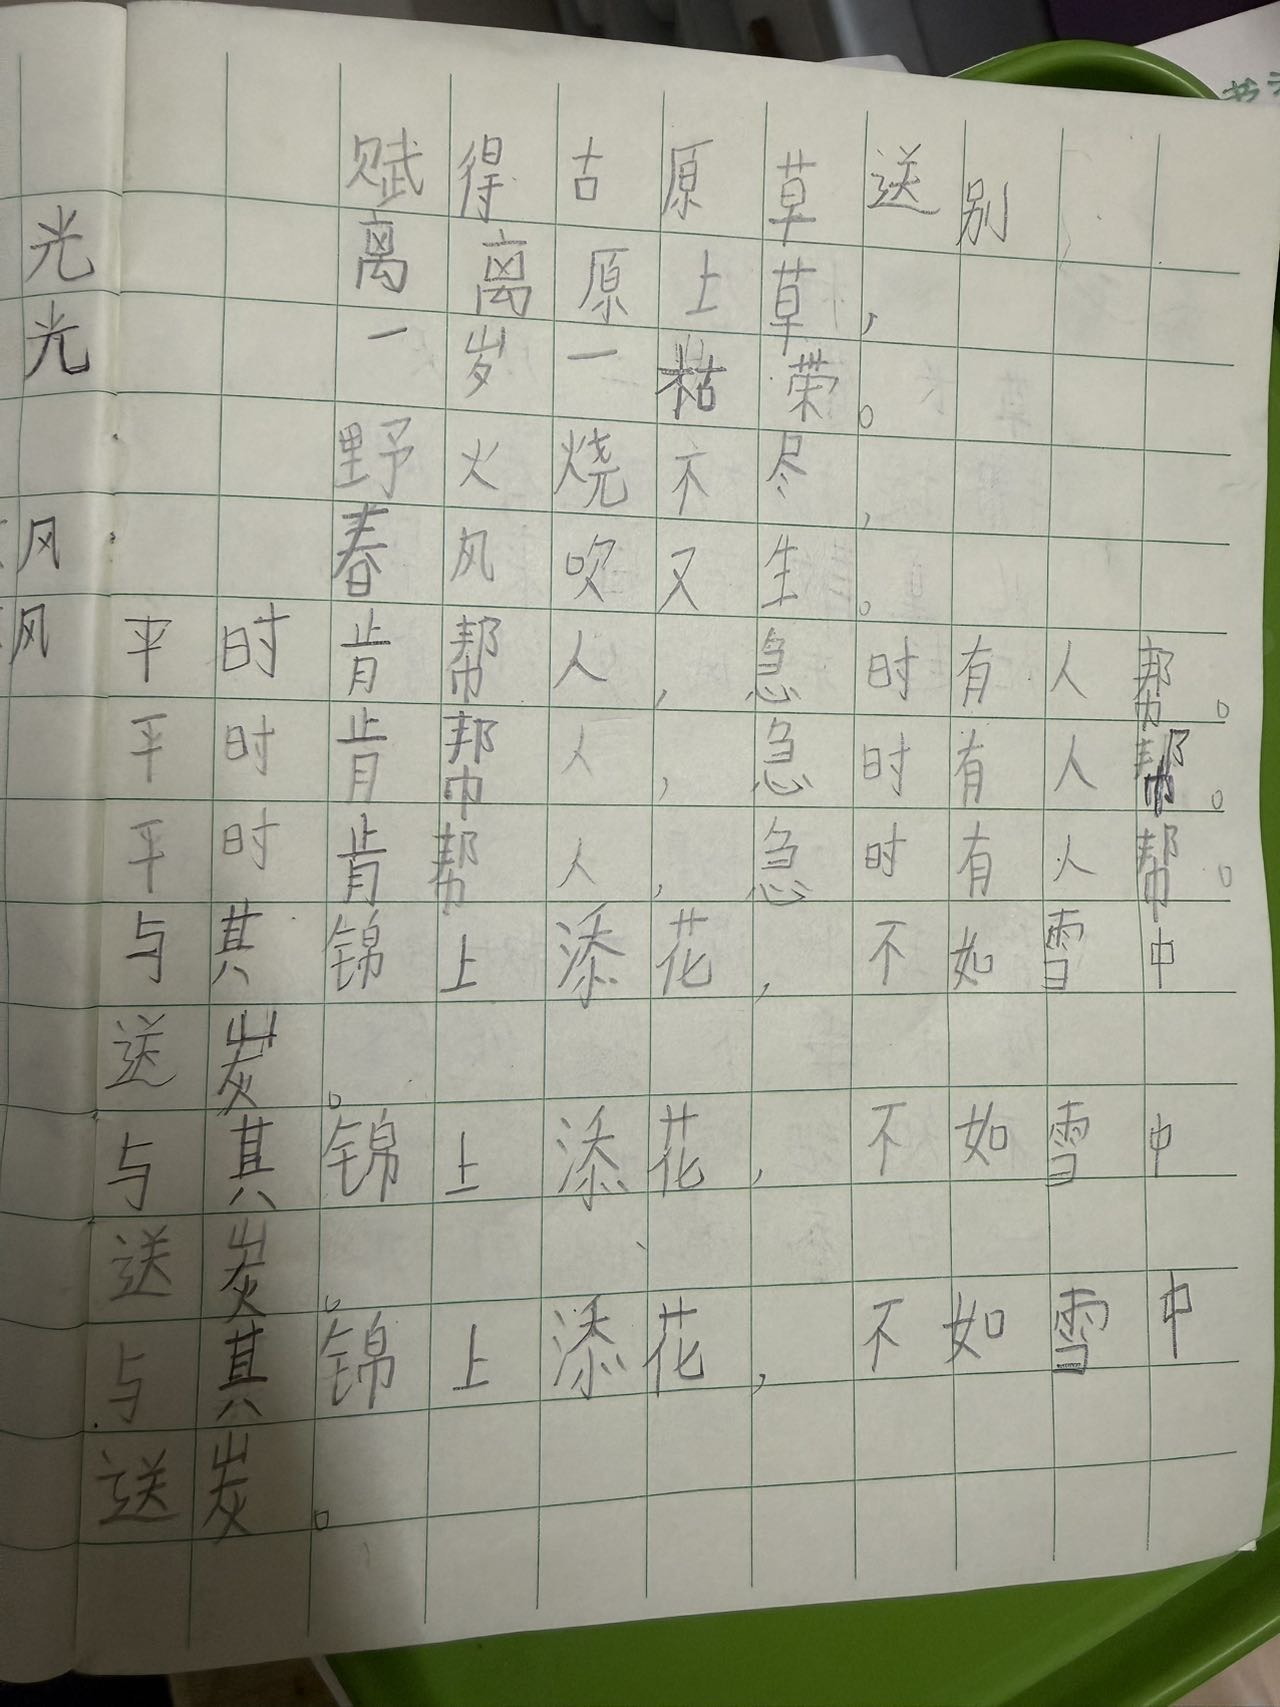 赋得古原草送别
离离原上草，
一岁一枯荣。
野火烧不尽，
春风吹又生。
平时肯帮人，急时有人帮。
平时肯帮人，急时有人帮。
平时肯帮人，急时有人帮。
与其锦上添花，不如雪中
送炭。
与其锦上添花，不如雪中
送炭。
与其锦上添花，不如雪中
送炭。
光
光
风
风